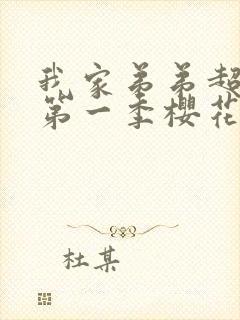 我家弟弟超
第一季樱花
杜某